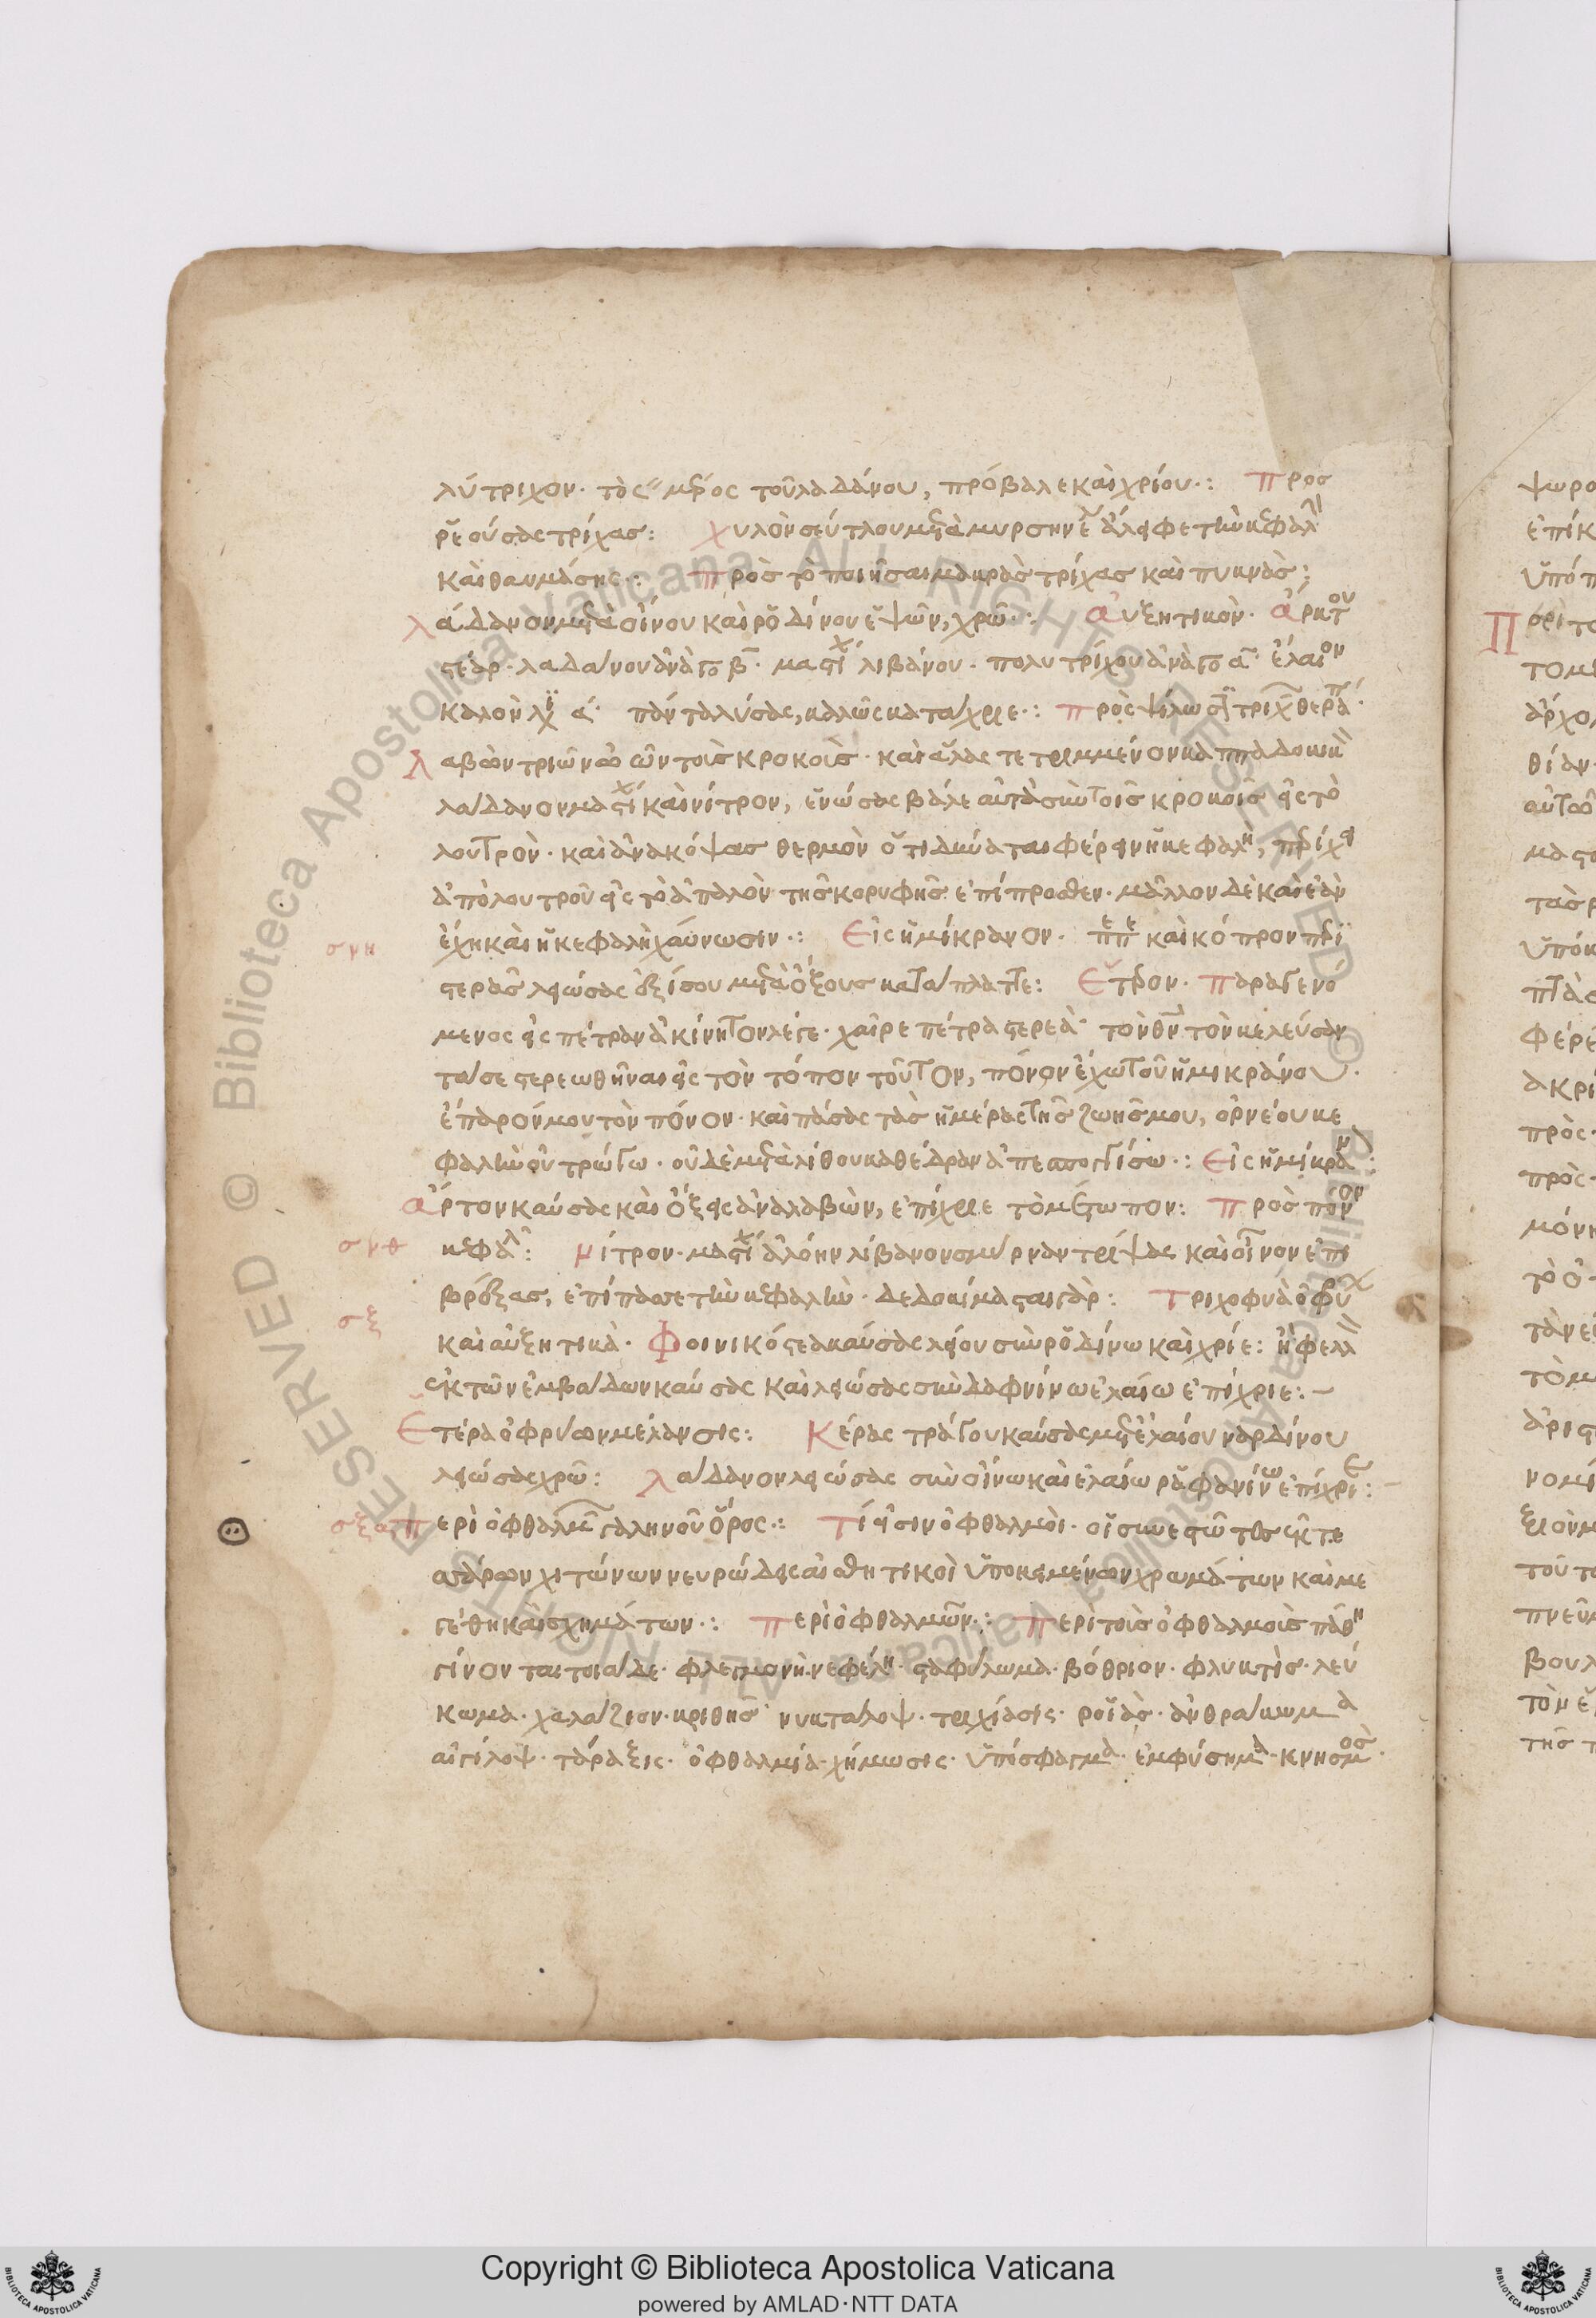 λύτριχον· τὸ ϛʹʹ μέρος τοῦ λαδάνου, πρόβαλε καὶ χρίου·: Προς
ῥεούσας τρίχας: χυλὸν σεύτλου μετὰ μυρσίνης ἄλειφε τὴν κεφαλ
καὶ θαυμάσης·: πρὸς τὸ ποιῆσαι μακρὰς τρίχας καὶ πυκνὰς:
λάδανον μετὰ οἴνου καὶ ῥοδίνου ἑψῶν, χρῶ·: αὐξητικὸν· ἄρκτου
στέαρ· λαδάνου ἀνὰ γο β· μαστίχ λιβάνου· πολυτρίχου ἀνὰ γο α· ἔλαιον
καλὸν α· πάντα λύσας, καλῶς κατάχριε·: πρὸς ψιλώσεις τριχ θεραπ
λαβὼν τριῶν ὠῶν τοὺς κροκοὺς· καὶ ἅλας τετριμμένον καππαδοκικ
λάδανον μαστίχ καὶ νίτρον, ἑνώσας βάλε αὐτὰ σὺν τοῖς κροκοῖς εἰς τὸ
λουτρὸν· καὶ ἀνακόψας θερμὸν ὅτι δύναται φέρειν ἡ κεφαλη,
ἀπὸ λουτροῦ εἰς τὸ ἁπαλὸν τῆς κορυφῆς ἐπίπροσθεν· μᾶλλον δὲ καὶ ἐὰν
ἔχη καὶ ἡ κεφαλὴ χαύνωσιν·: Εἰς ἡμίκρανον· πεπε καὶ κόπρον περι
στερᾶς λειώσας ἐξίσου μετὰ ὄξους κατάπλαττε: Ετερον· Παραγενό
μενος εἰς πέτραν ἀκίνητον λέγε· χαῖρε πέτρα στερεὰ· τὸν θν τὸν κελεύσαν
τά σε στερεωθῆναι εἰς τὸν τόπον τοῦτον, πόνον ἔχω τοῦ ἡμικράνου·
ἔπαρόν μου τὸν πόνον· καὶ πάσας τὰς ἡμέρας τῆς ζωῆς μου, ὀρνέου κε
φαλὴν οὐ τρώγω· οὐδὲ μετὰ λίθου καθέδραν ἀπεσπογγίσω·: Εἰς ἡμίκραν:
ἄρτον καύσας καὶ ὄξει ἀναλαβὼν, ἐπίχριε τὸ μέτωπον: Πρὸς πόνον
κεφαλ: Νίτρον· μαστίχ ἀλόην λίβανον σμύρναν τρίψας καὶ οἶνον ἐπι
βρέξας, ἐπίπασσε τὴν κεφαλὴν· δεδοκίμασται γὰρ: Τριχοφυὰ ὀφρύ
καὶ αὐξητικὰ· Φοινικόστεα καύσας λείου σὺν ῥοδίνω καὶ χρίε: ἢ φελλ
ἐκ τῶν ἐμβάδων καύσας καὶ λειώσας σὺν δαφνίνω ἐλαίω ἐπίχριε:–
Ετέρα ὀφρύων μέλανσις: Κέρας τράγου καύσας μετὰ ἐλαίου ναρδίνου
λειώσας χρῶ: Λάδανον λειώσας σὺν οἴνω καὶ ἐλαίω ῥαφανίνω ἐπίχριε:
Περὶ ὀφθαλμῶν γαληνοῦ ὅρος·: Τί εἰσιν ὀφθαλμοὶ· οἱ συνεστῶτες ἐκ τε
σσάρων χιτώνων νευρώδεις αἰσθητικοὶ ὑποκειμένων χρωμάτων καὶ με
γέθη καὶ σχημάτων·: Περὶ ὀφθαλμῶν·: Περὶ τοὺς ὀφθαλμοὺς πάθη
γίνονται τοιάδε· φλεγμονὴ· νεφέλη· σταφύλωμα· βόθριον· φλυκτὶς· λεύ
κωμα· χαλάζιον· κριθης· νυκτάλωψ· τριχίασις· ῥοϊὰς· ἀνθράκωμα
αἰγίλωψ· τάραξις· ὀφθαλμία· χήμωσις· ὑπόσφαγμα· ἐμφύσημα· κνησμος·
σνη
σνθ
σξ
σξα
Copyright © Biblioteca Apostolica Vaticana
powered by AMLAD·NTT DATA